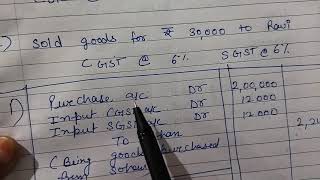 ) Sold goods for ₹ 30,000 to Ravi
CGST @ 6% SGST @ 6%
1) Purchase a/c Dr 2,00,000
Input CGST a/c Dr 12 000
Input SGST a/c Dr 12 000
To
( Being goods purchased